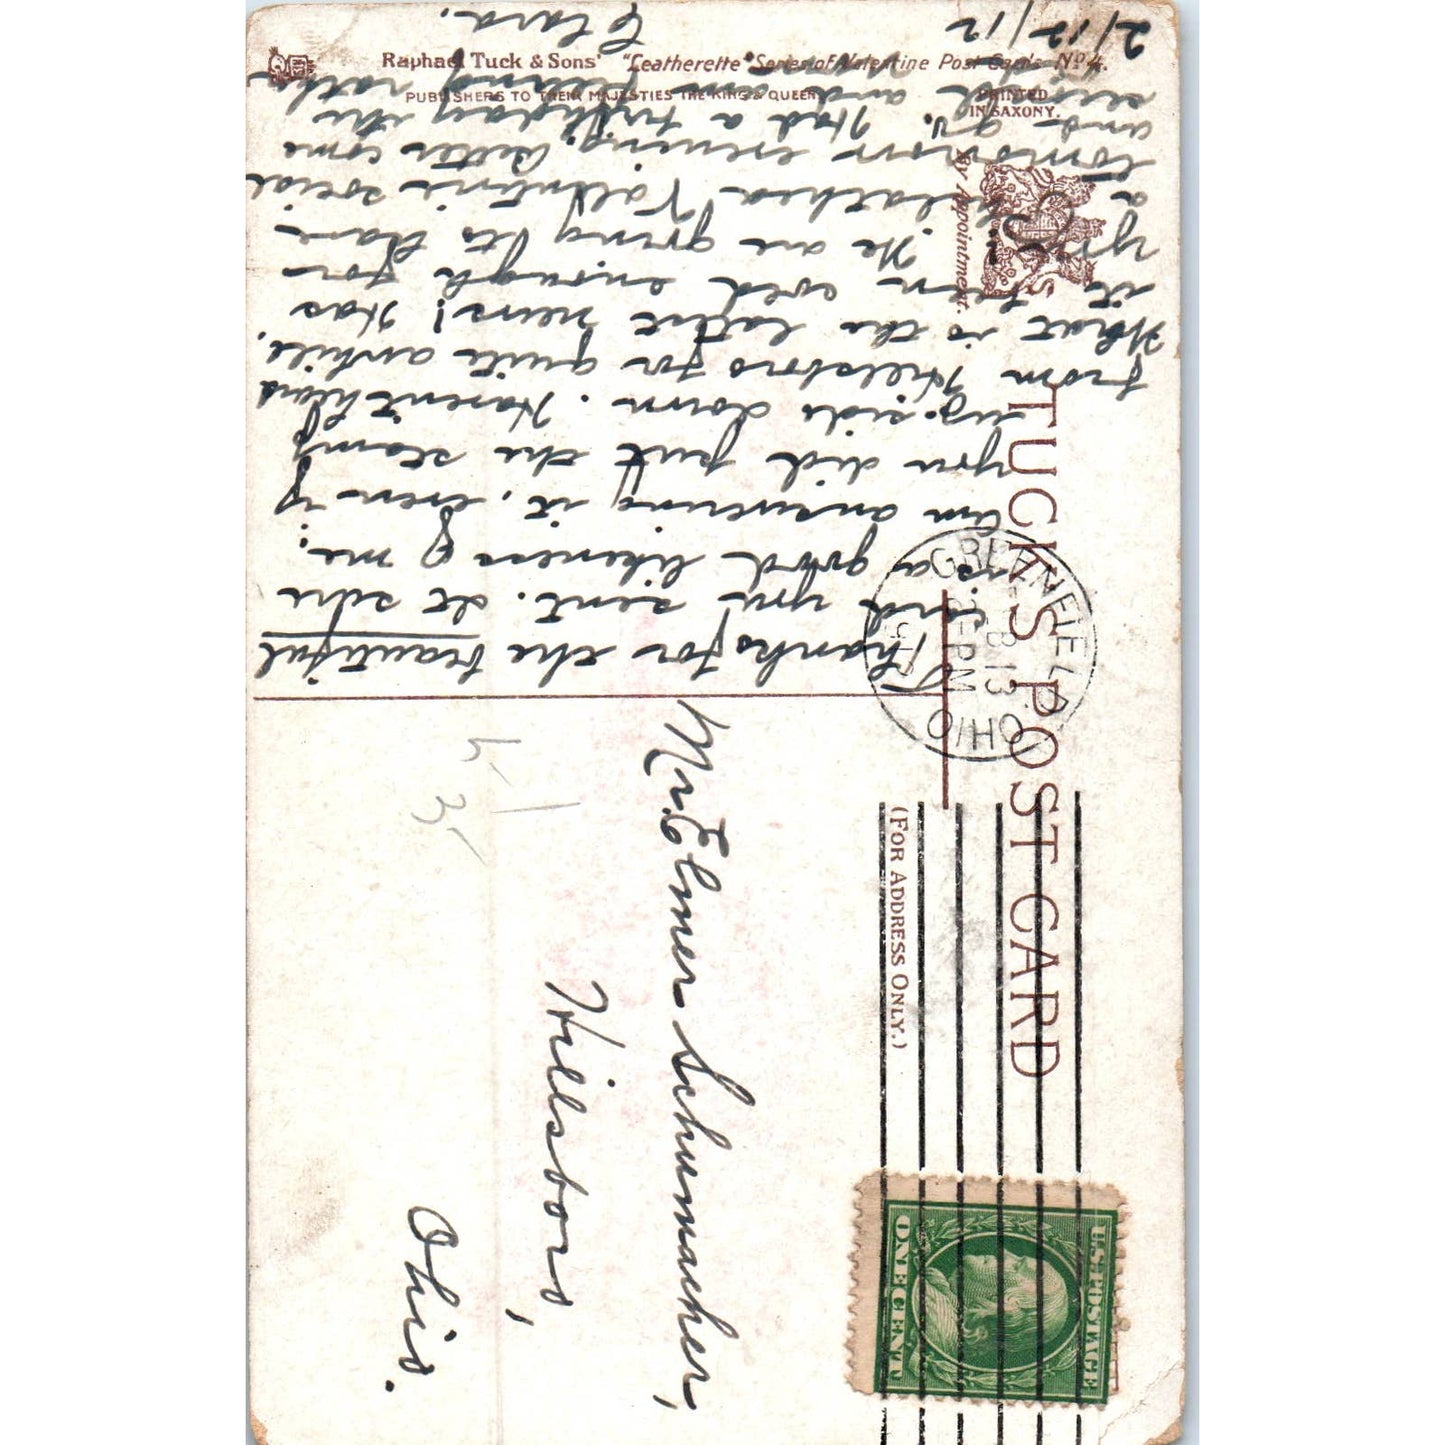 Raphael Tuck & Sons' "Leatherette" Series of Valentine Post Cards No 4.
PUBLISHERS TO THEIR MAJESTIES THE KING & QUEEN
PRINTED
IN SAXONY.
By Appointment.
TUCK'S POST CARD
(FOR ADDRESS ONLY.)
GREENFIELD
FEB 13
-PM
1912
OHIO
U.S. POSTAGE
ONE CENT
Thanks for the beautiful
card you sent. It sure
is a good likeness of me.
am answering it, even if
you did put the stamp
up-side down. Haven't heard
from Hillsboro for quite awhile.
What is the latest news! Has
it been cold enough for
you? We are going to have
a Valentine social
tomorrow evening. Better come
and go. Had a birthday the
and am
Clara.
2/12/12
Mr. Elmer Schumacher,
Hillsboro,
Ohio.